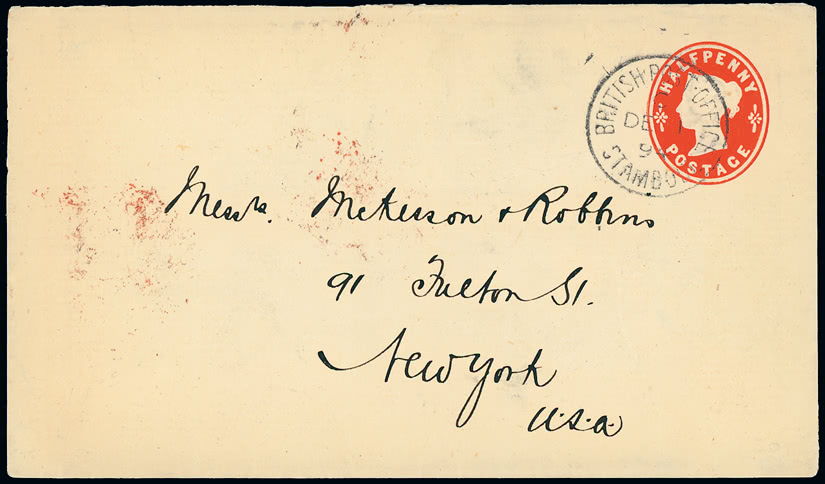 HALFPENNY
POSTAGE
BRITISH POST OFFICE
DE 1
9
Messrs. McKesson & Robbins
91 Fulton St.
New York
U.S.A.